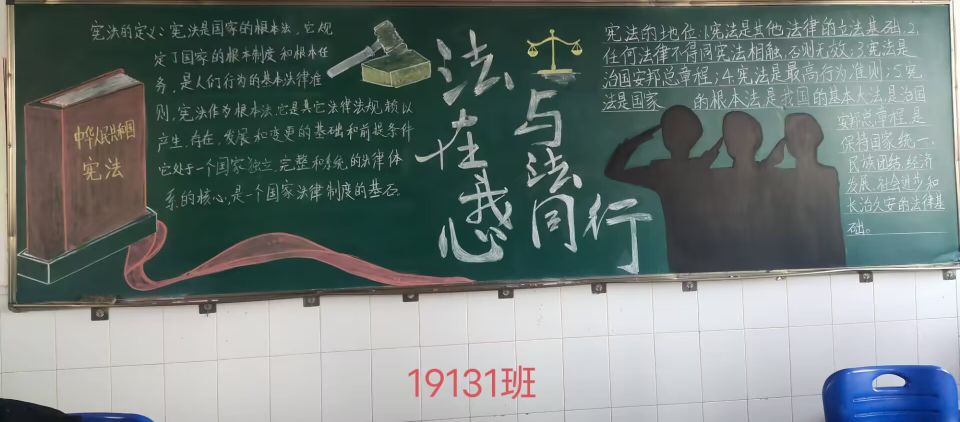 宪法的定义：宪法是国家的根本法，它规
定了国家的根本制度和根本任
务，是人们行为的基本法律准
则，宪法作为根本法，它是其它法律法规，赖以
产生、存在、发展和变更的基础和前提条件
它处于一个国家独立、完整和系统的法律体
系的核心，是一个国家法律制度的基石。
中华人民共和国
宪法
法在我心
与法同行
宪法的地位：1.宪法是其他法律的立法基础；2.
任何法律不得同宪法相触，否则无效；3.宪法是
治国安邦总章程；4.宪法是最高行为准则；5.宪
法是国家 的根本法是我国的基本大法，是治国
安邦总章程，是
保持国家统一、
民族团结、经济
发展、社会进步和
长治久安的法律基
础。
19131班